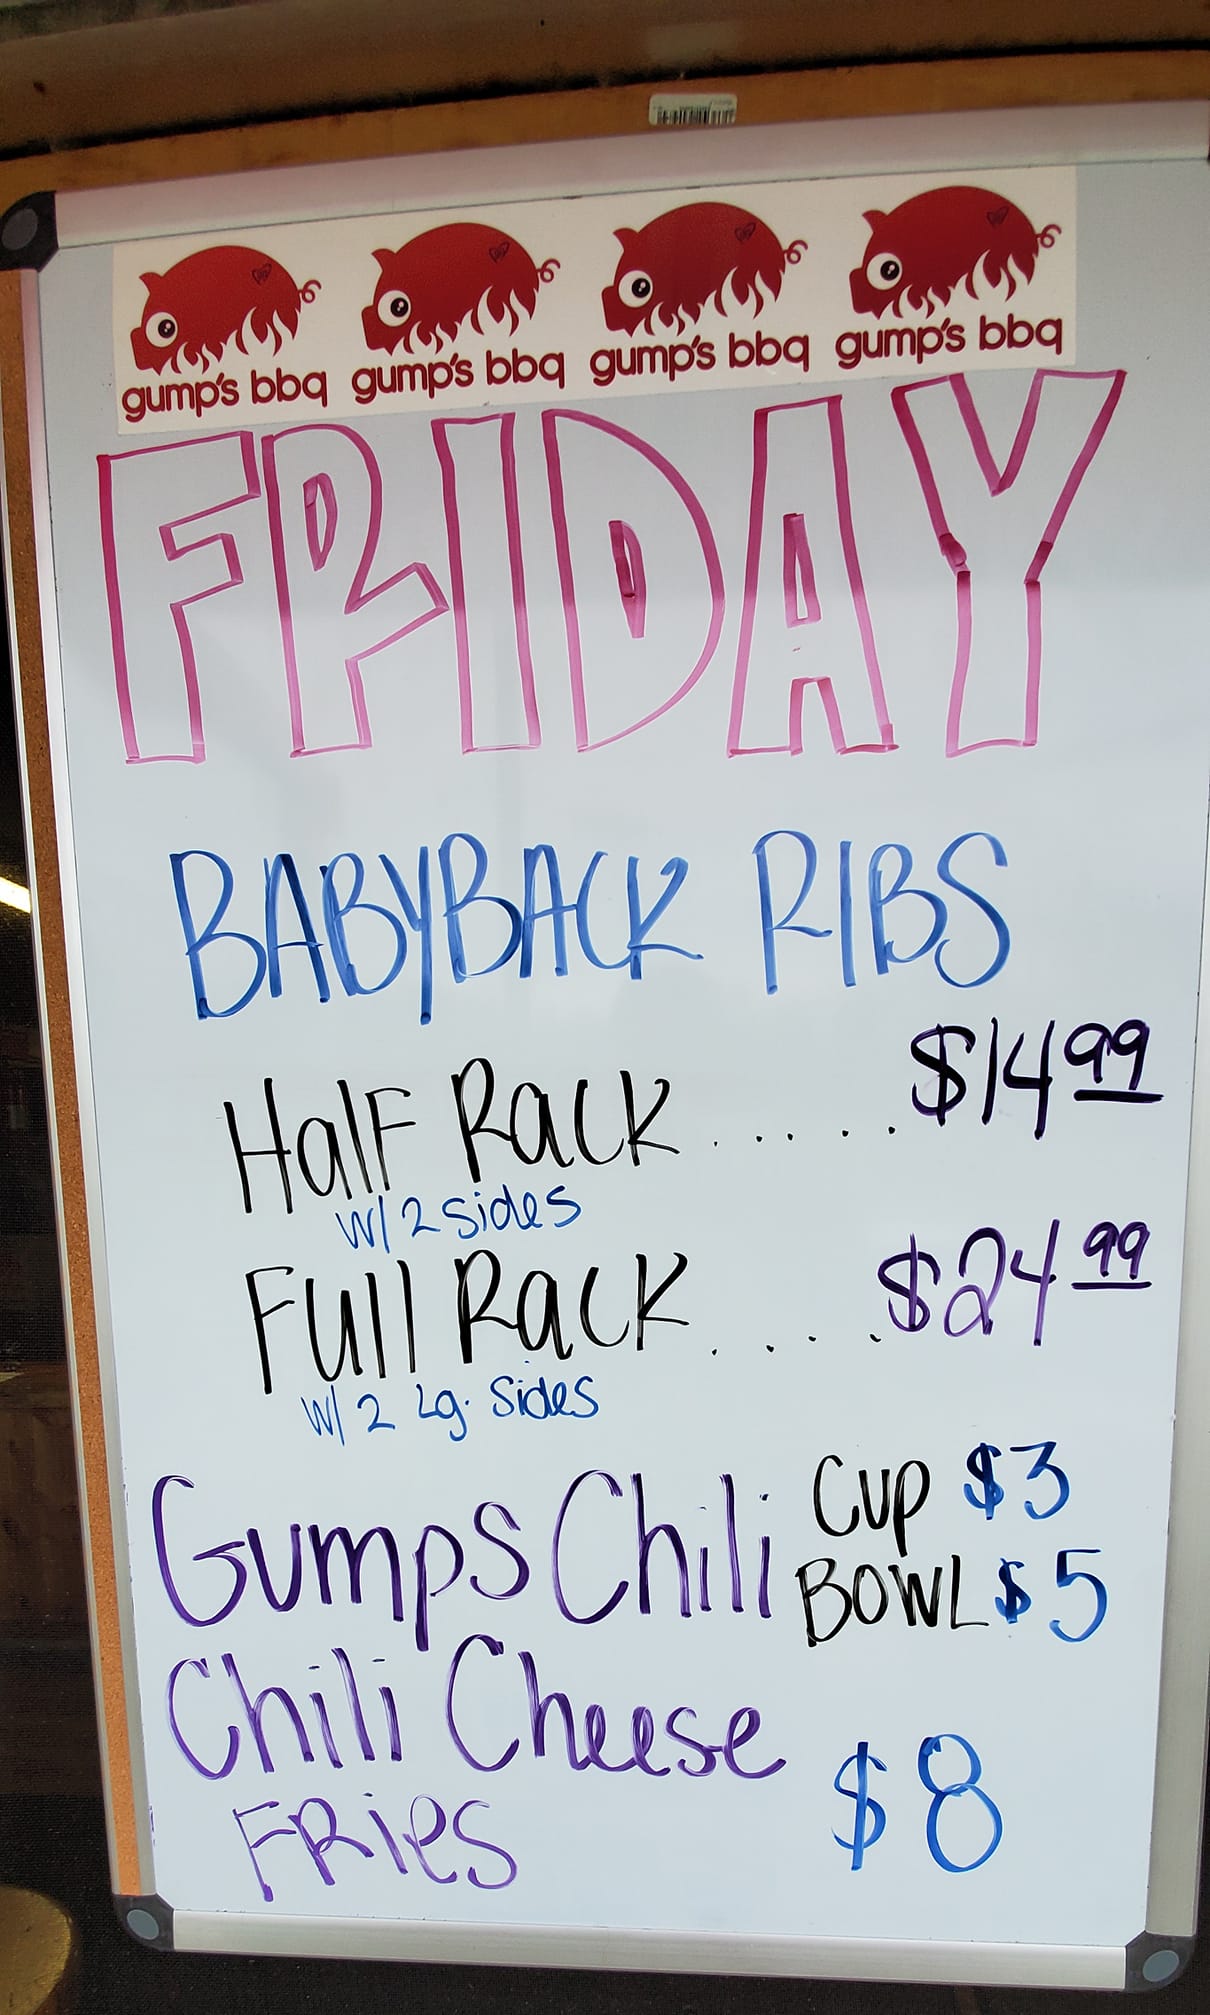 gump's bbq gump's bbq gump's bbq gump's bbq
FRIDAY
BABYBACK RIBS
Half Rack ...... $14.99
w/ 2 sides
Full Rack .... $24.99
w/ 2 Lg. Sides
Gumps Chili Cup $3
BOWL $5
Chili Cheese
FRies $8